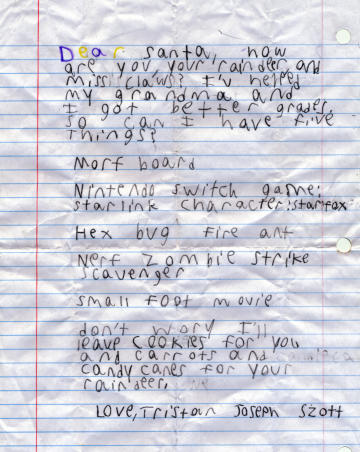 Dear santa, how
are you, your rainder, and
miss claws? I'v helped
my grandma and
I got better grades,
so can I have five
things?
Morf board
Nintendo switch game:
starlink character:starfox
Hex bug fire ant
Nerf Zombie strike
scavenger
small foot movie
don't worry I'll
leave cookies for you
and carrots and
candy canes for your
rain'deer,
LOVE, Tristan Joseph Szott